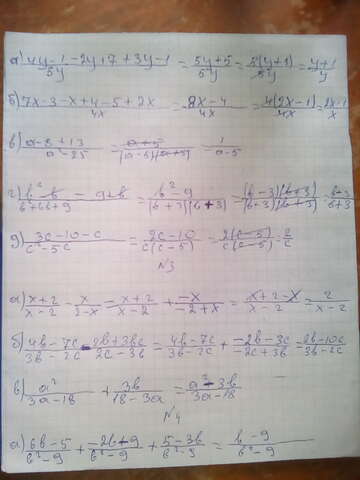 а) (4y-1-2y+7+3y-1)/5y = (5y+5)/5y = 5(y+1)/5y = (y+1)/y
б) (7x-3-x+4-5+2x)/4x = (8x-4)/4x = 4(2x-1)/4x = (2x-1)/x
в) (a-8+13)/(a²-25) = (a+5)/((a-5)(a+5)) = 1/(a-5)
г) (b²-b-9+b)/(b²+6b+9) = (b²-9)/((b+3)(b+3)) = (b-3)(b+3)/((b+3)(b+3)) = (b-3)/(b+3)
д) (3c-10-c)/(c²-5c) = (2c-10)/(c(c-5)) = 2(c-5)/(c(c-5)) = 2/c
№3
а) (x+2)/(x-2) - x/(2-x) = (x+2)/(x-2) + (-x)/(-2+x) = (x+2-x)/(x-2) = 2/(x-2)
б) (4b-7c)/(3b-2c) - (2b+3bc)/(2c-3b) = (4b-7c)/(3b-2c) + (-2b-3c)/(-2c+3b) = (2b-10c)/(3b-2c)
в) a²/(3a-18) + 3b/(18-3a) = (a²-3b)/(3a-18)
№4
а) (6b-5)/(b²-9) + (-2b+9)/(b²-9) + (5-3b)/(b²-9) = (b-9)/(b²-9)